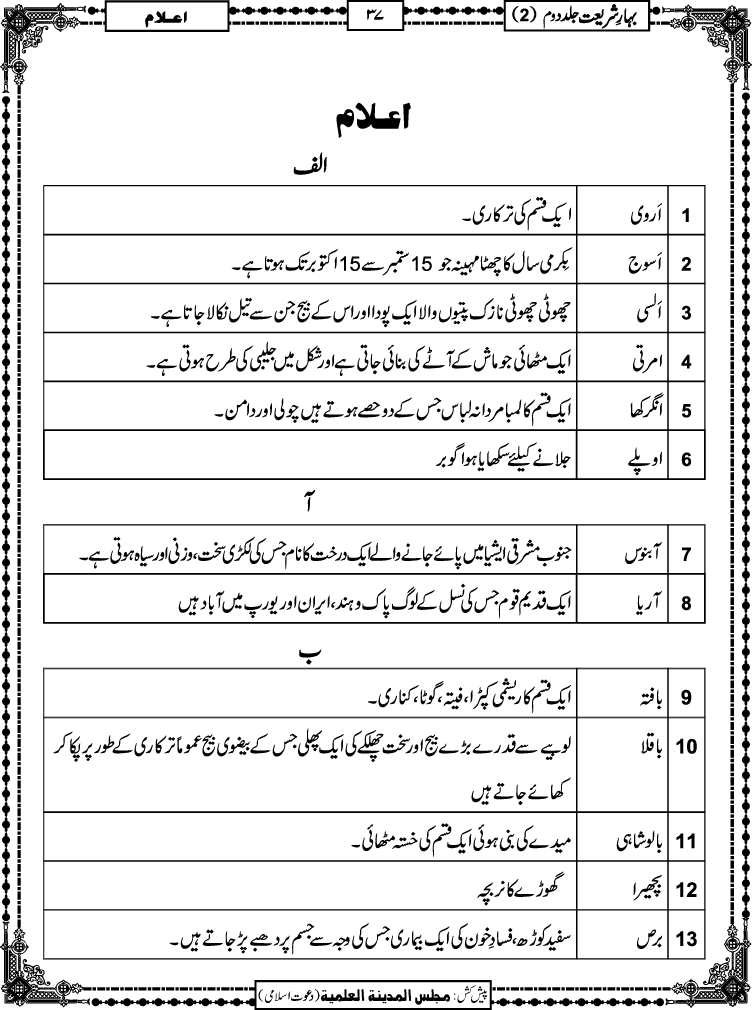 بہارِ شریعت جلد دوم (2)
۳۷
اعلام
اعلام
الف
1 اَروی ایک قسم کی ترکاری۔
2 اَسوج بِکرمی سال کا چھٹا مہینہ جو 15 ستمبر سے 15 اکتوبر تک ہوتا ہے۔
3 اَلسی چھوٹی چھوٹی نازک پتیوں والا ایک پودا اور اس کے بیج جن سے تیل نکالا جاتا ہے۔
4 امرتی ایک مٹھائی جو ماش کے آٹے کی بنائی جاتی ہے اور شکل میں جلیبی کی طرح ہوتی ہے۔
5 انگرکھا ایک قسم کا لمبا مردانہ لباس جس کے دو حصے ہوتے ہیں چولی اور دامن۔
6 اوپلے جلانے کیلئے سکھایا ہوا گوبر
آ
7 آبنوس جنوب مشرقی ایشیا میں پائے جانے والے ایک درخت کا نام جس کی لکڑی سخت، وزنی اور سیاہ ہوتی ہے۔
8 آریا ایک قدیم قوم جس کی نسل کے لوگ پاک و ہند، ایران اور یورپ میں آباد ہیں
ب
9 بافتہ ایک قسم کا ریشمی کپڑا، فیتہ، گوٹا، کناری۔
10 باقلا لوبیے سے قدرے بڑے بیج اور سخت چھلکے کی ایک پھلی جس کے بیضوی بیج عموماً ترکاری کے طور پر پکا کر
کھائے جاتے ہیں
11 بالوشاہی میدے کی بنی ہوئی ایک قسم کی خستہ مٹھائی۔
12 بچھیرا گھوڑے کا نر بچہ
13 برص سفید کوڑھ، فسادِ خون کی ایک بیماری جس کی وجہ سے جسم پر دھبے پڑ جاتے ہیں۔
پیش کش: مجلس المدینة العلمیة (دعوت اسلامی)